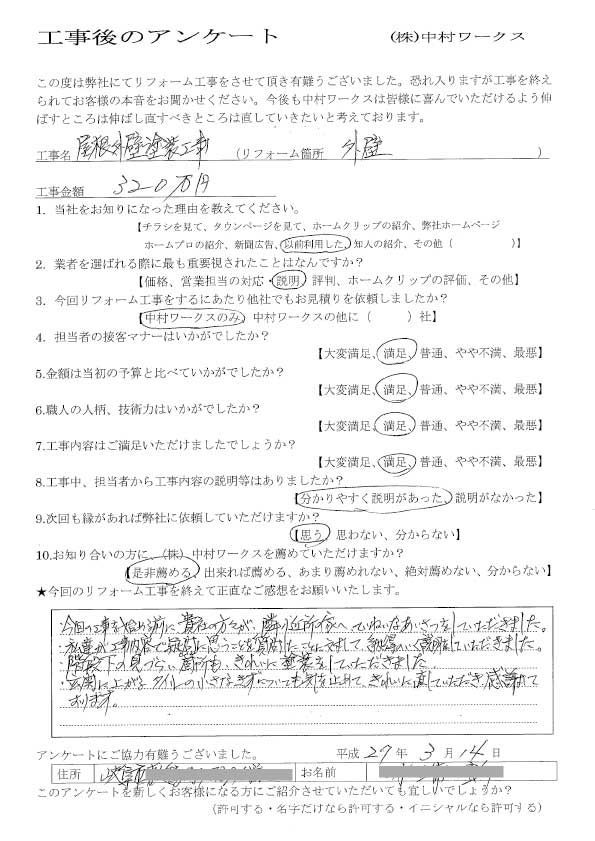 工事後のアンケート (株)中村ワークス
この度は弊社にてリフォーム工事をさせて頂き有難うございました。恐れ入りますが工事を終え
られてお客様の本音をお聞かせください。今後も中村ワークスは皆様に喜んでいただけるよう伸
ばすところは伸ばし直すべきところは直していきたいと考えております。
工事名 屋根外壁塗装工事 (リフォーム箇所 外壁 )
工事金額 320万円
1. 当社をお知りになった理由を教えてください。
【チラシを見て、タウンページを見て、ホームクリップの紹介、弊社ホームページ
ホームプロの紹介、新聞広告、以前利用した、知人の紹介、その他 ( )】
2. 業者を選ばれる際に最も重要視されたことはなんですか?
【価格、営業担当の対応・説明、評判、ホームクリップの評価、その他】
3. 今回リフォーム工事をするにあたり他社でもお見積りを依頼しましたか?
【中村ワークスのみ、中村ワークスの他に ( ) 社】
4. 担当者の接客マナーはいかがでしたか?
【大変満足、満足、普通、やや不満、最悪】
5.金額は当初の予算と比べていかがでしたか?
【大変満足、満足、普通、やや不満、最悪】
6.職人の人柄、技術力はいかがでしたか?
【大変満足、満足、普通、やや不満、最悪】
7.工事内容はご満足いただけましたでしょうか?
【大変満足、満足、普通、やや不満、最悪】
8.工事中、担当者から工事内容の説明等はありましたか?
【分かりやすく説明があった、説明がなかった】
9.次回も縁があれば弊社に依頼していただけますか?
【思う、思わない、分からない】
10.お知り合いの方に、(株) 中村ワークスを薦めていただけますか?
【是非薦める、出来れば薦める、あまり薦めれない、絶対薦めない、分からない】
★今回のリフォーム工事を終えて正直なご感想をお願いいたします。
今回の工事を始める前に貴社の方々が、隣り近所の家へていねいなあいさつをしていただきました。
・私達が工事内容で疑問に思うことを質問したことに対して、納得いく説明をしていただきました。
・階段下の見づらい箇所も、きれいに塗装をしていただきました。
・玄関に上がるタイルの小さなきずについても気を止めて、きれいに直していただき感謝して
おります。
アンケートにご協力有難うございました。 平成 27 年 3 月 14 日
住所 お名前
このアンケートを新しくお客様になる方にご紹介させていただいても宜しいでしょうか?
(許可する・名字だけなら許可する・イニシャルなら許可する)